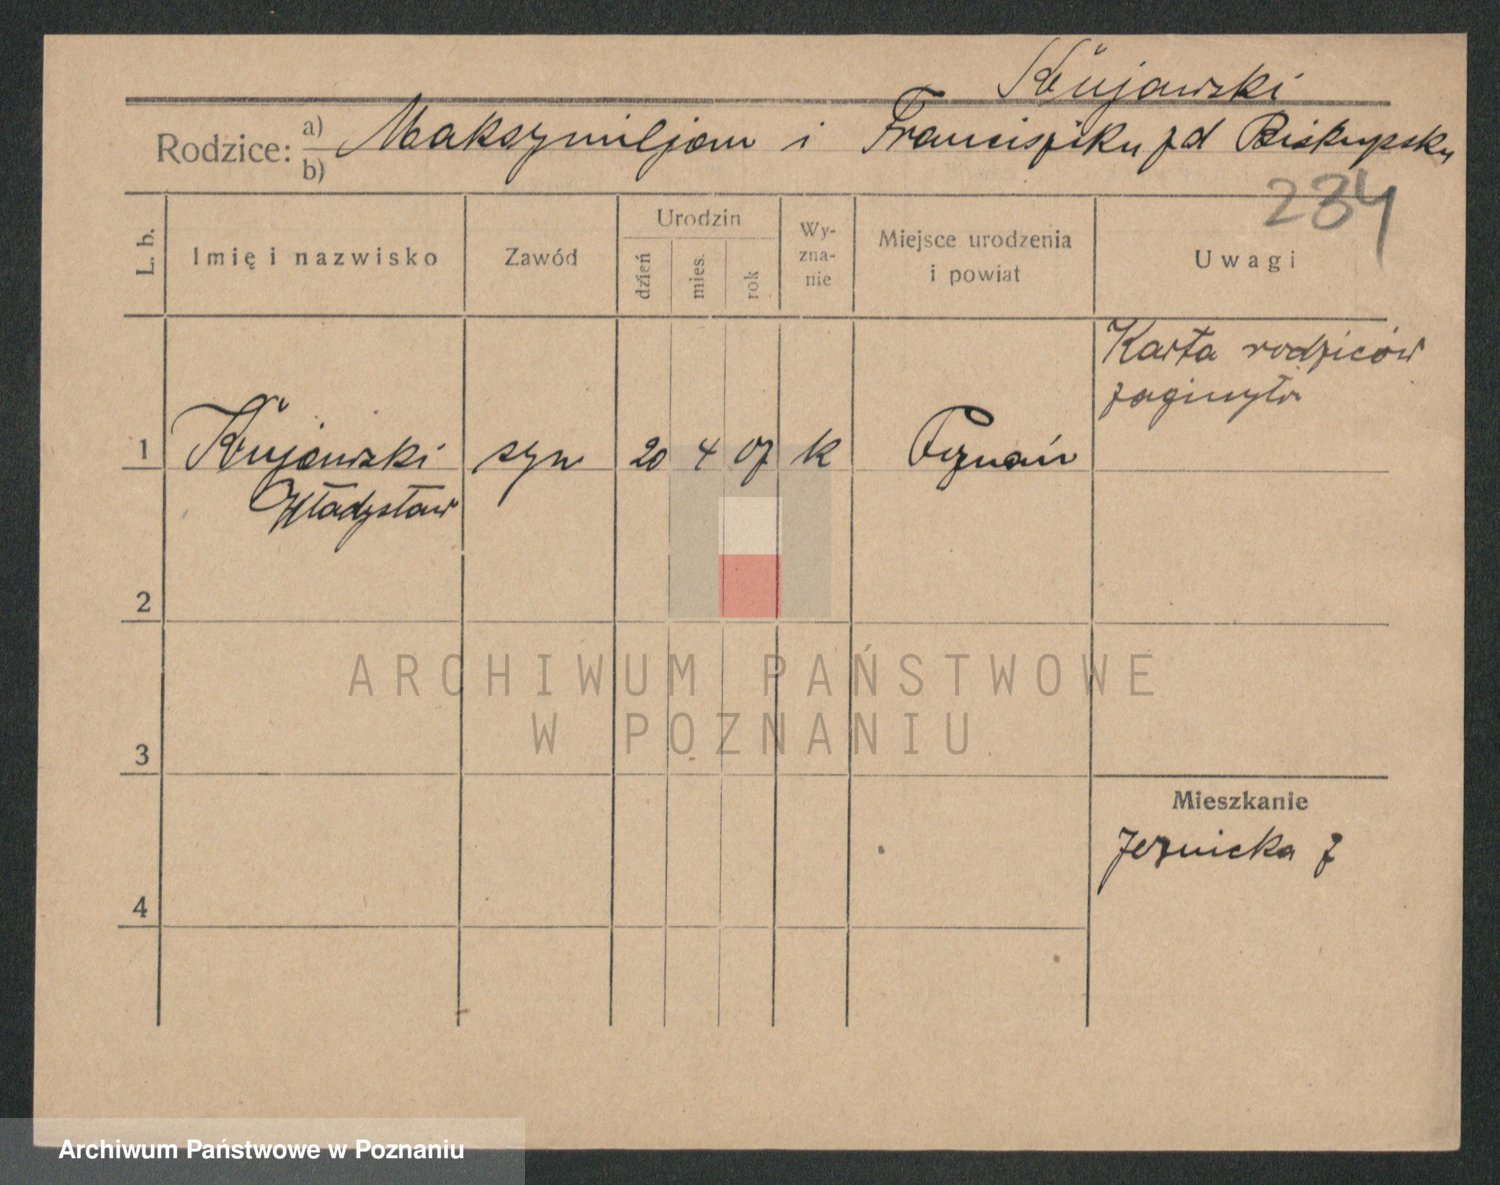 Kujawski
Rodzice: a) b) Maksymiljan i Franciszku zd Biskupsku
234
L. b. Imię i nazwisko Zawód Urodzin dzień mies. rok Wy-zna-nie Miejsce urodzenia i powiat Uwagi
Karta rodziców
zaginęła
1 Kujawski syn 20 4 07 k Poznań
Władysław
2
ARCHIWUM PAŃSTWOWE
W POZNANIU
3
Mieszkanie
4
Archiwum Państwowe w Poznaniu